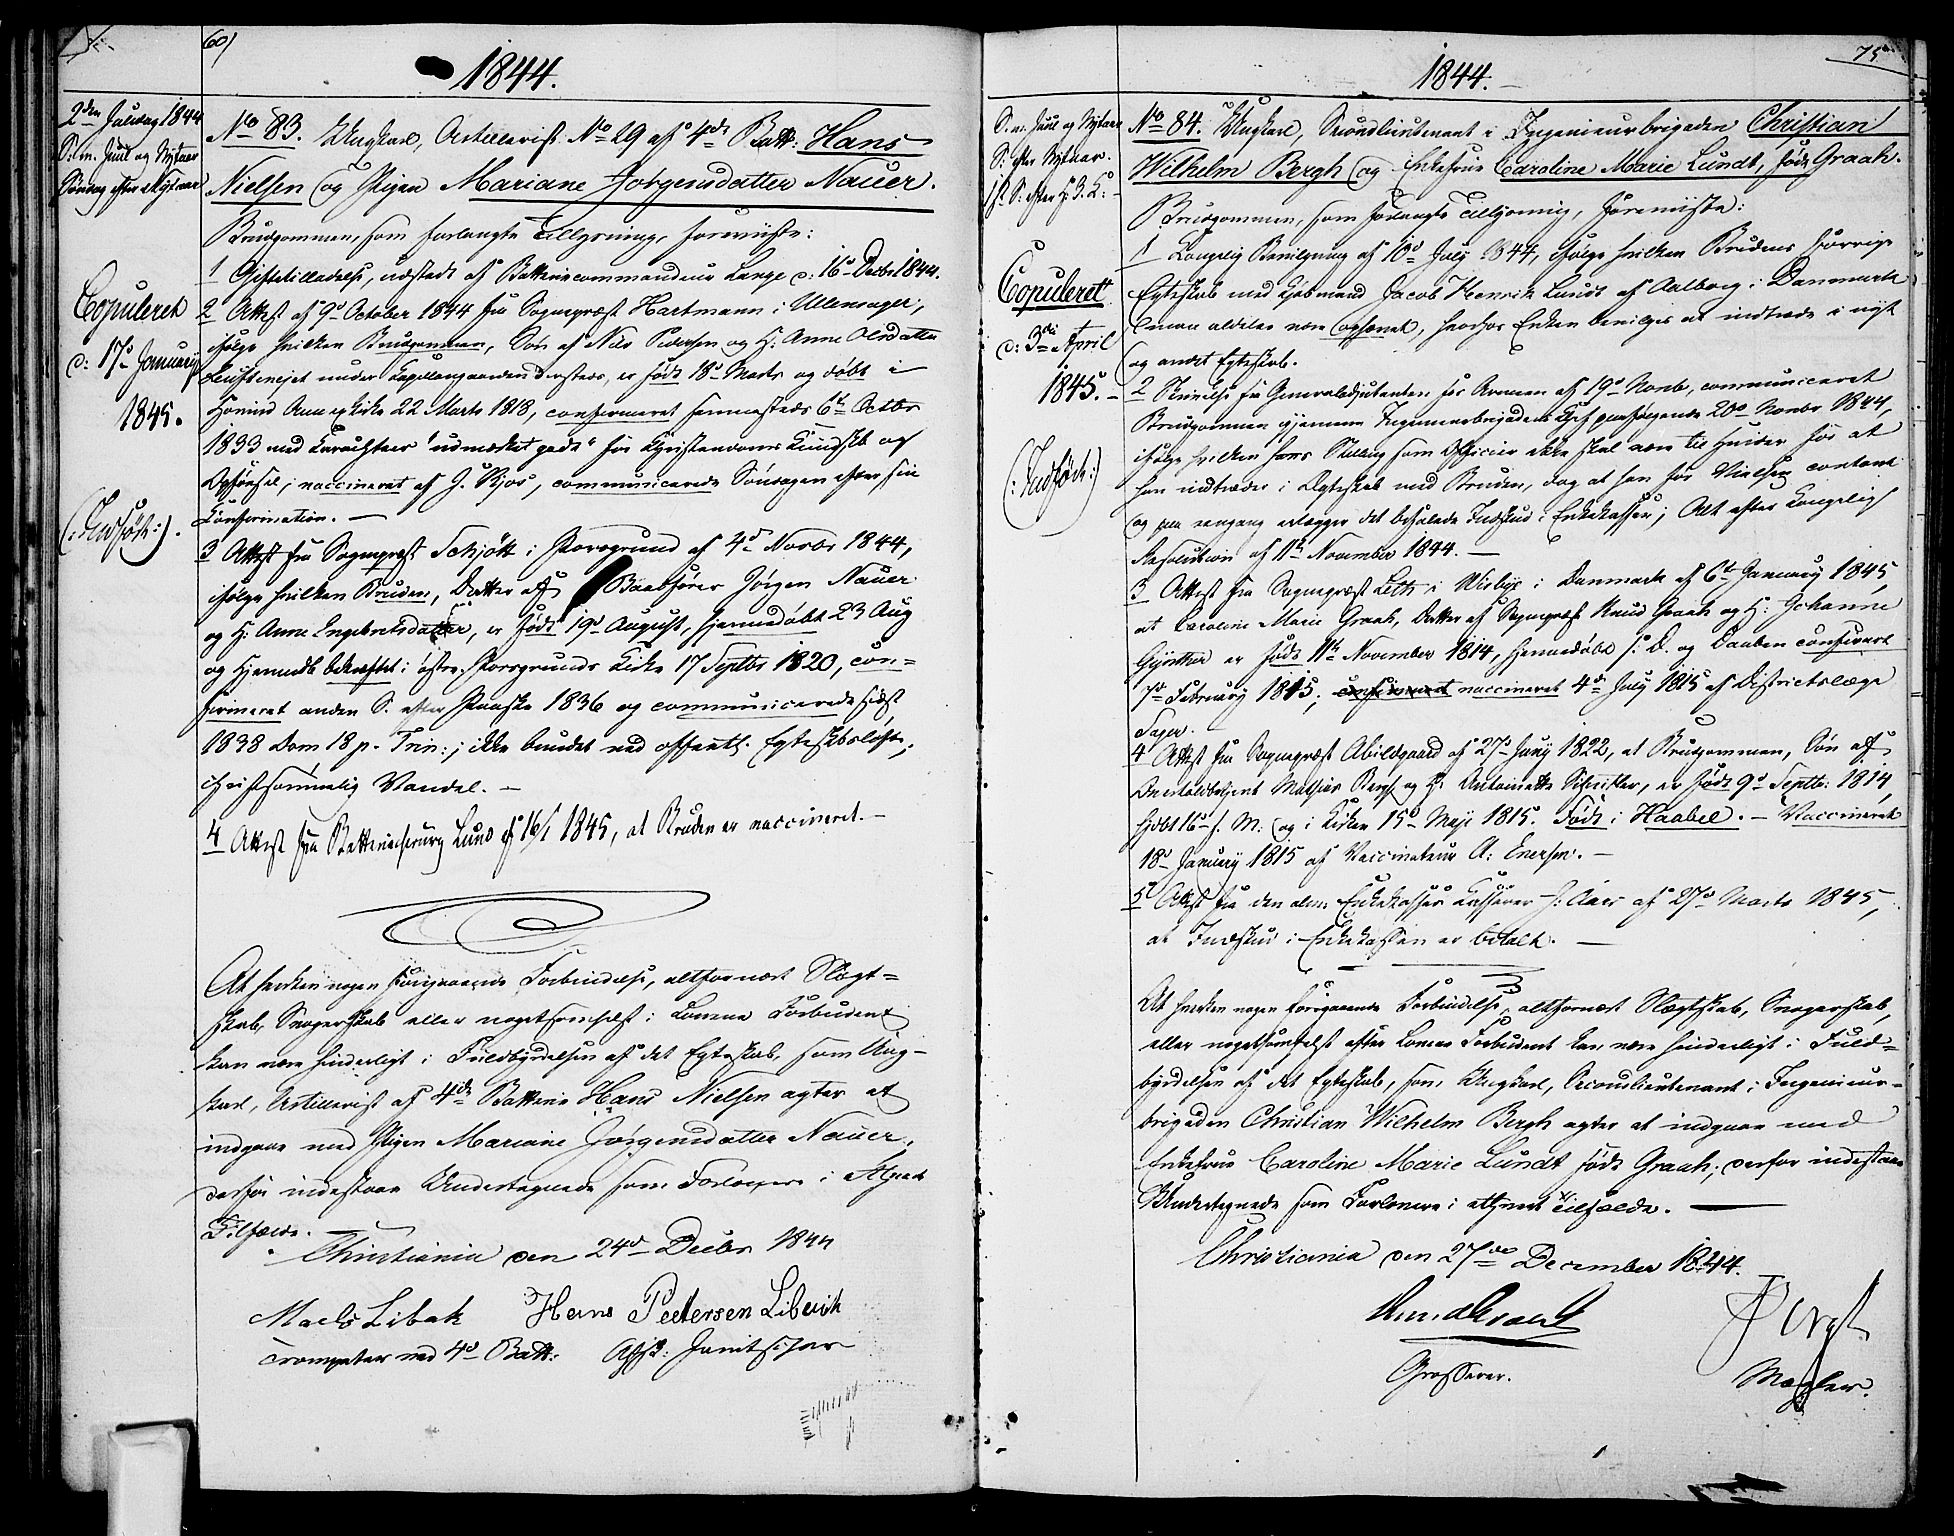 60)
1844.
2den Juledag 1844
S. m. Juul og Nytaar
Søndag efter Nytaar
No 83. Ungkarl, Artillerist No 29 af 4de Batt: Hans
Nielsen og Pigen Mariane Jørgensdatter Nauer.
Brudgommen, som forlangte Tillysning, foreviiste:
1 Giftetilladelse, udstedt af Battericommandeur Lange d: 16de Decbr 1844.
2 Attest af 9d October 1844 fra Sognepræst Hartmann i Ullensager,
ifølge hvilken Brudgommen, Søn af Niels Pedersen og H: Anne Olsdatter
under Capellangaarden dersteds, er født 18d Marts og døbt i
Hovind Annexkirke 22 Marts 1818, confirmeret sammesteds 6te Octbr
1833 med Karachteer "udmærket godt" for Christendoms Kundskab og
Opførsel, vaccineret af G. Kjos, communicerede Søndagen efter sin
Confirmation. —
3 Attest fra Sognepræst Schjøtt i Porsgrund af 4d Novbr 1844,
ifølge hvilken Bruden, Datter af Baadfører Jørgen Nauer
og H: Anne Engebretsdatter, er født 19d August, hjemmedøbt 23 Aug
og Hjemmedb bekræftet i østre Porsgrunds Kirke 17 Septbr 1820, con-
firmeret anden S. efter Paaske 1836 og communicerede sidst
1838 Dom 18 p. Trin:; ikke bundet ved offentl. Egteskabsløfte;
christsømmelig Vandel. —
4 Attest fra Battericchirurg Lund af 16/1 1845, at Bruden er vaccineret. —
Copuleret
d: 17d January
1845.
(: Indført :).
At hverken nogen foregaaende Forbindelse, altfornært Slægt-
skab, Svogerskab eller nogetsomhelst i Lovene Forbudent
kan være hinderligt i Fuldbyrdelsen af det Egteskab, som Ung-
karl, Artillerist af 4de Batterie Hans Nielsen agter at
indgaae med Pigen Mariane Jørgensdatter Nauer,
derfor indestaae Undertegnede som Forlovere i ethvert
Tilfælde.
Christiania den 24d Decbr 1844
Mads Libak Hans Pettersen Liberik
Trompeter ved 4d Batt: Afsk: Janitschar
75
1844.
S. m. Juul og Nytaar
S: efter Nytaar.
1ste S: efter H. 3. K: —
No 84. Ungkarl, Secondlieutenant i Ingenieurbrigaden Christian
Wilhelm Bergh og Enkefrue Caroline Marie Lundt, født Graah.
Brudgommen, som forlangte Tillysning, foreviiste:
1 Kongelig Bevilgning af 10d July 1844, ifølge hvilken Brudens forrige
Egteskab med Kjøbmand Jacob Henrik Lundt af Aalborg i Danmark
aldeles være ophævet, hvorfor Enken bevilges at indtræde i nyt
og andet Egteskab.
2 Skrivelse fra Generaladjutanten for Armeen af 19d Novb, communiceret
Brudgommen igjennem Ingenieurbrigadens Chef paafølgende 20d Novbr 1844,
ifølge hvilken hans Stilling som Officier ikke skal være til Hinder for at
han indtræder i Egteskab med Bruden, dog at han før Vielsen contant
og paa eengang erlægger det befalede Indskud i Enkekassen; Alt efter Kongelig
Resolution af 11te November 1844. —
3 Attest fra Sognepræst Leth i Wisbye i Danmark af 6te January 1845,
at Caroline Marie Graah, Datter af Sognepræst Knud Graah og H: Johanne
Gynther er født 11te November 1814, hjemmedøbt s. D. og Daaben confirmeret
7d February 1815; confirmeret vaccineret 4de July 1815 af Districtslæge
4 Attest fra Sognepræst Abildgaard af 27d Juny 1822, at Brudgommen, Søn af
Mathias Bergh og H: Antoinette, er født 9d Septbr: 1814,
hjdbt 16d s. M. og i Kirken 15d Maji 1815. Født i Haabøl. — Vaccineret
18d January 1815 af Vaccinateur A: Enersen. —
5 Attest fra den alm: Enkekasses Kasserer H: Aars af 27d Marts 1845,
at Indskud i Enkekassen er betalt. —
Copuleret
d: 3die April
1845. —
(: Indført :)
At hverken nogen foregaaende Forbindelse, altfornært Slægtskab, Svogerskab,
eller nogetsomhelst efter Lovene Forbudent kan være hinderligt i Fuld-
byrdelsen af det Egteskab, som Ungkarl, Secondlieutenant i Ingenieur-
brigaden Christian Wilhelm Bergh agter at indgaae med
Enkefrue Caroline Marie Lundt født Graah; derfor indestaae
Undertegnede som Forlovere i ethvert Tilfælde. —
Christiania den 27de December 1844.
Grosserer.
Mægler.